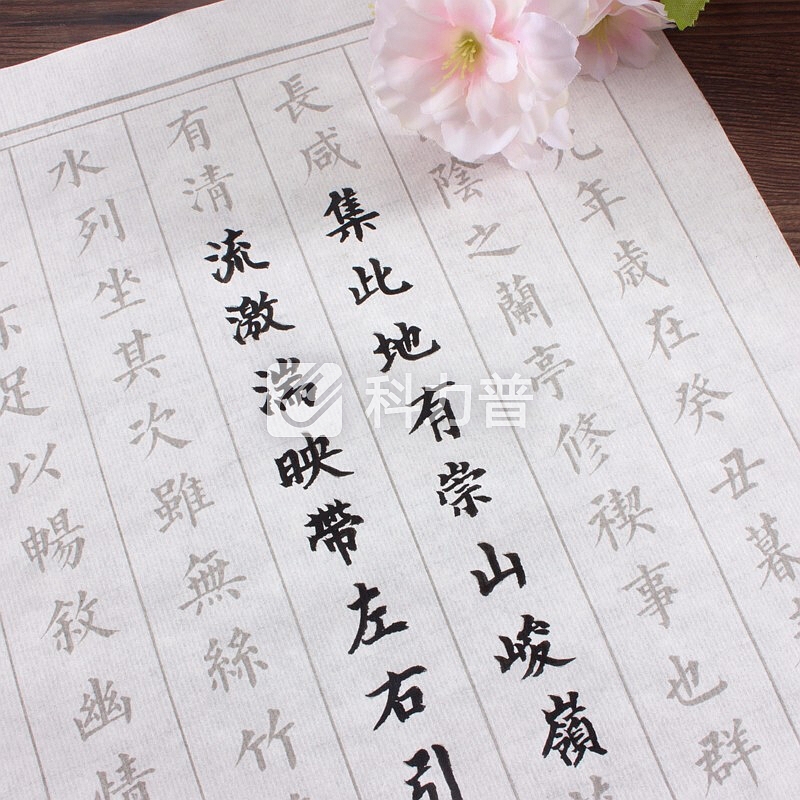 九年歲在癸丑暮
陰之蘭亭修禊事也群
長咸集此地有崇山峻嶺
有清流激湍映帶左右引
水列坐其次雖無絲竹
亦足以暢敘幽情
科力普